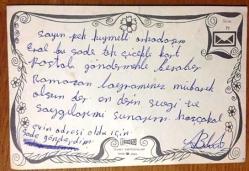 sayın pek kıymetli arkadaşım
bu sade tek çiçekli kart
Postalı göndermekle beraber
Ramazan bayramınız mübarek
olsun der en derin sevgi ve
saygılarımı sunarım hoşçakal
adresi olduğu için
sade gönderdim